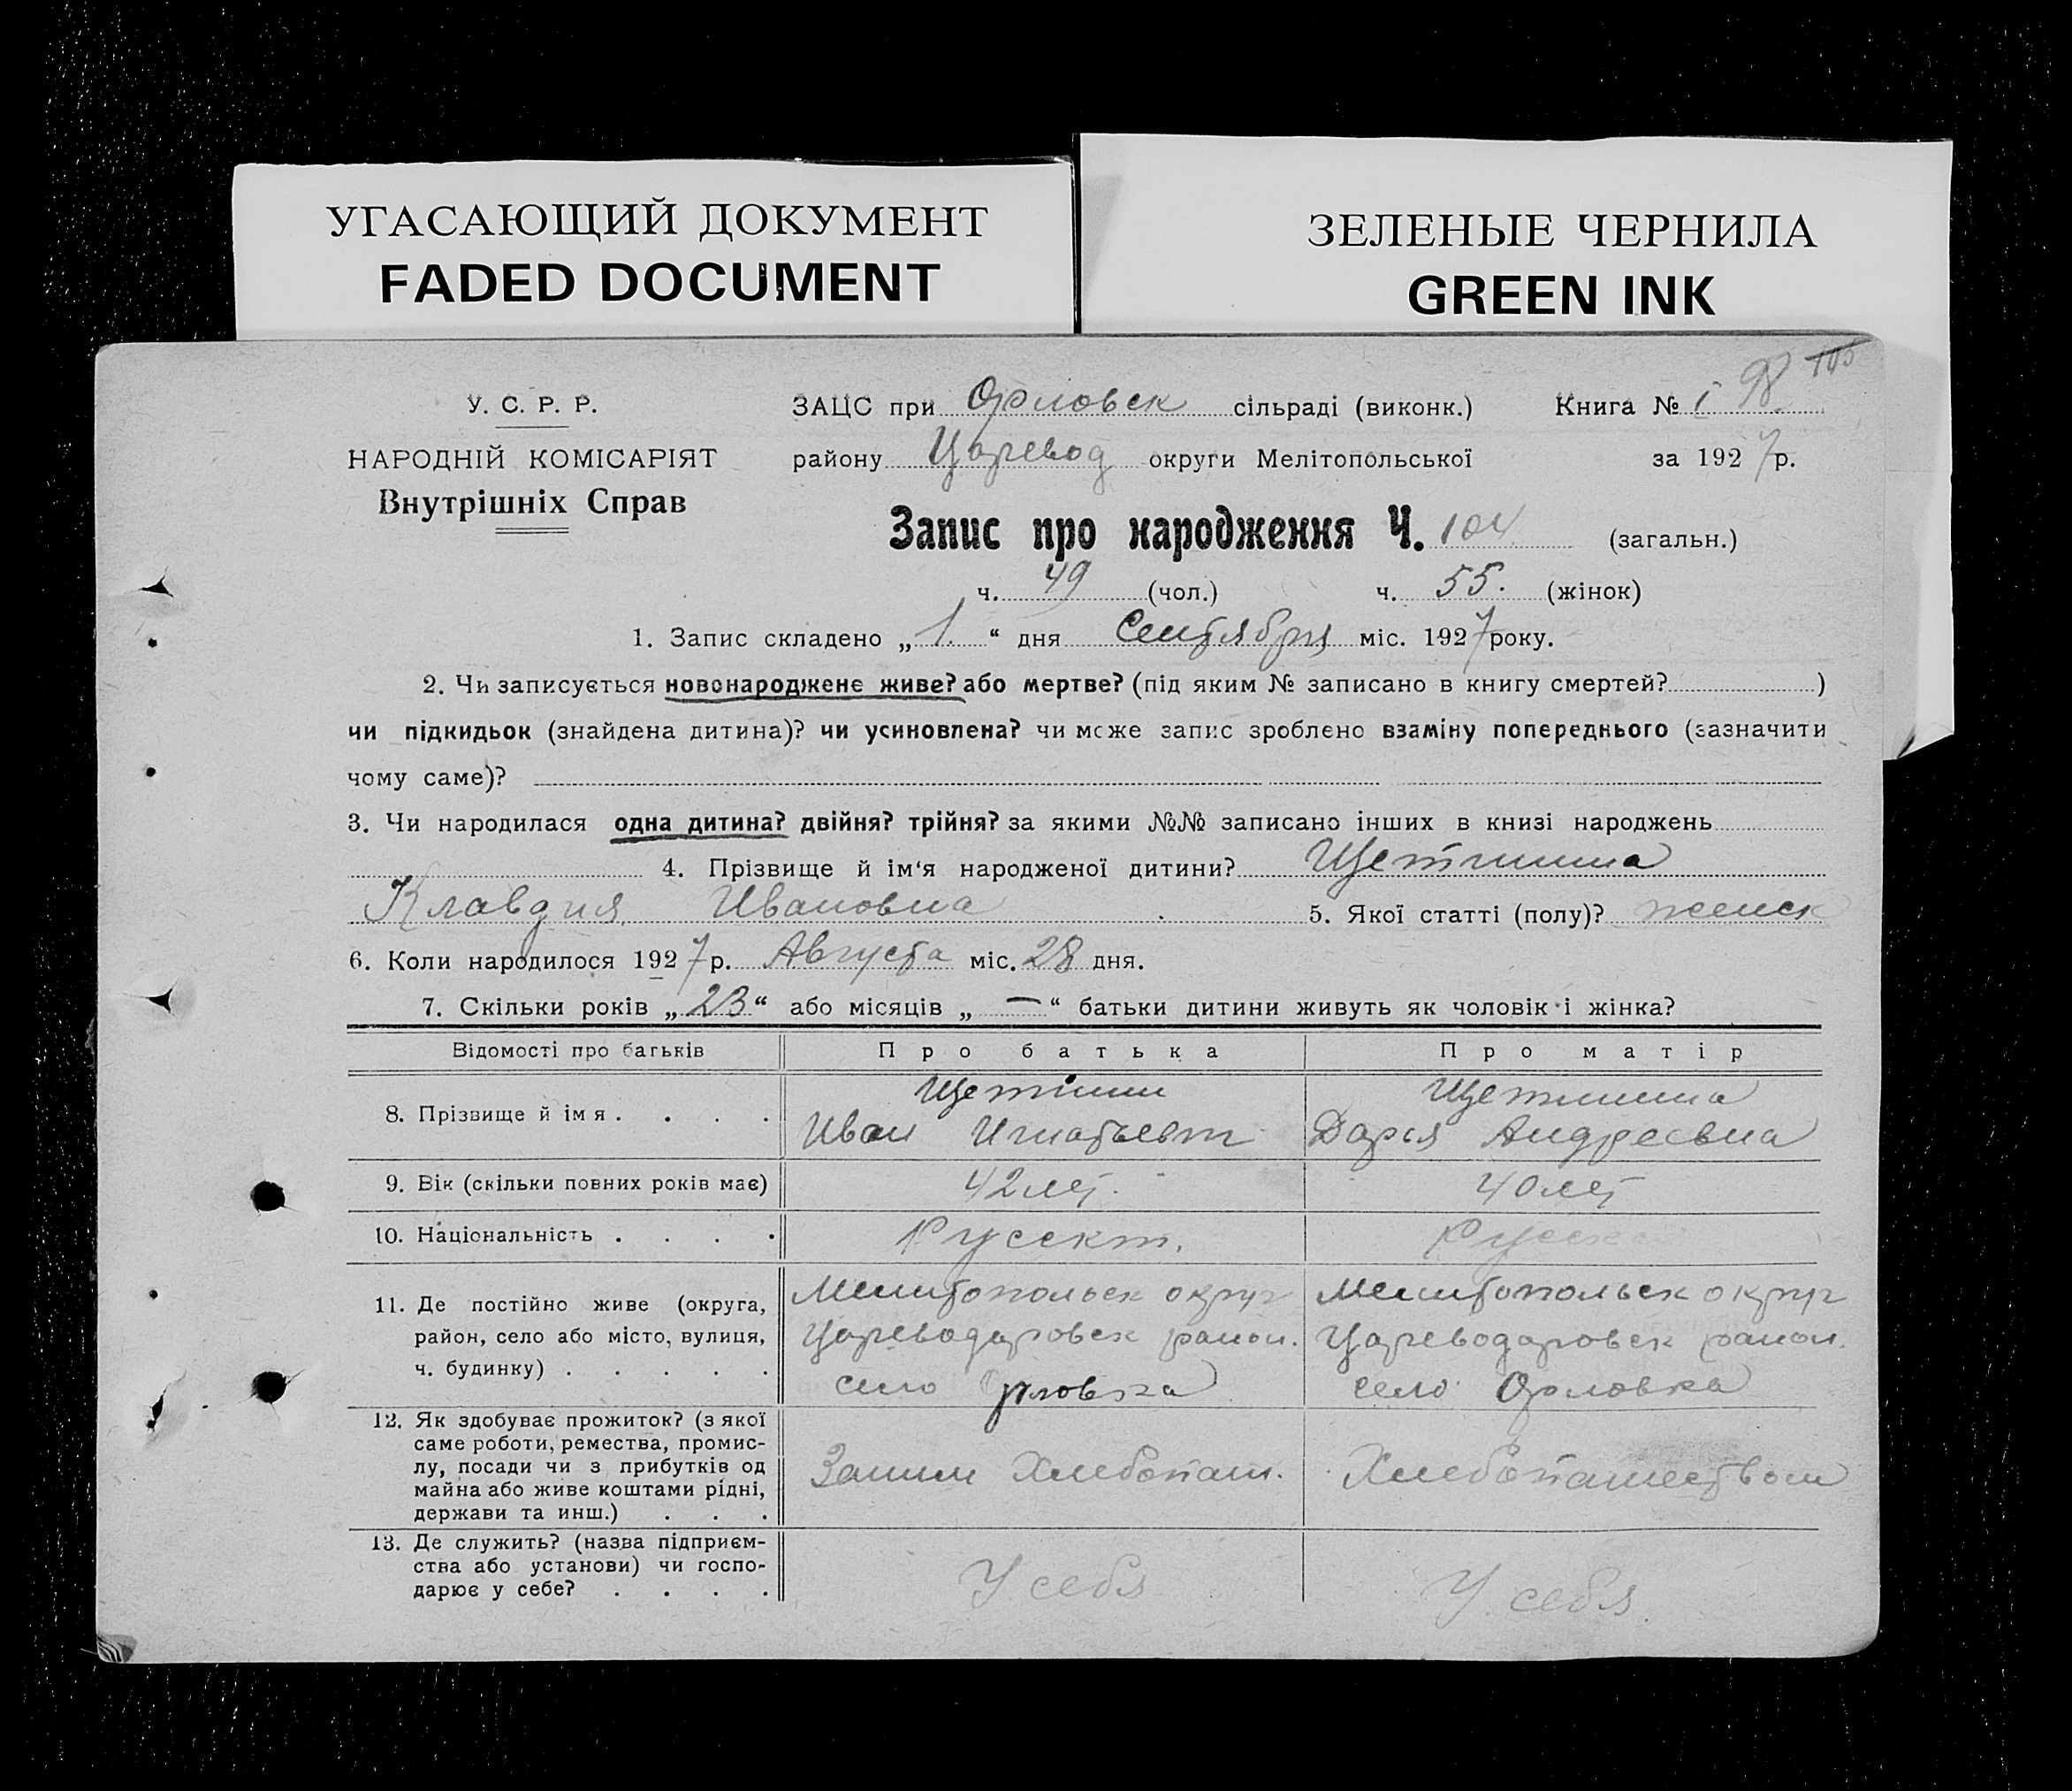 УГАСАЮЩИЙ ДОКУМЕНТ
FADED DOCUMENT
ЗЕЛЕНЫЕ ЧЕРНИЛА
GREEN INK
98 105
У. С. Р. Р.
НАРОДНІЙ КОМІСАРІЯТ
Внутрішніх Справ
ЗАЦС при Орловск сільраді (виконк.) Книга № 1
району Царевод округи Мелітопольської за 1927р.
Запис про народження Ч. 104 (загальн.)
ч. 49 (чол.) ч. 55. (жінок)
1. Запис складено „1.“ дня Сентября міс. 1927 року.
2. Чи записується новонароджене живе? або мертве? (під яким № записано в книгу смертей? )
чи підкидьок (знайдена дитина)? чи усиновлена? чи може запис зроблено взаміну попереднього (зазначити
чому саме)?
3. Чи народилася одна дитина? двійня? трійня? за якими №№ записано інших в книзі народжень
4. Прізвище й ім‘я народженої дитини? Щетинина
Клавдия Ивановна 5. Якої статті (полу)? женск
6. Коли народилося 1927р. Августа міс. 28 дня.
7. Скільки років „23“ або місяців „—“ батьки дитини живуть як чоловік і жінка?
Відомості про батьків Про батька Про матір
8. Прізвище й імя . . . . Щетинин Щетинина
Иван Игнатьевич Дарья Андреевна
9. Вік (скільки повних років має) 42 лет. 40 лет
10. Національність . . . . Русский. Русск
11. Де постійно живе (округа, Мелитопольск округ Мелитопольск округ
район, село або місто, вулиця, Цареводаровск район. Цареводаровск район.
ч. будинку) . . . . . село Орловка село Орловка
12. Як здобуває прожиток? (з якої
саме роботи, ремества, промис-
лу, посади чи з прибутків од Заним Хлебопаш. Хлебопашеством
майна або живе коштами рідні,
держави та инш.) . . .
13. Де служить? (назва підприєм-
ства або установи) чи госпо- У себя У себя.
дарює у себе? . . . .